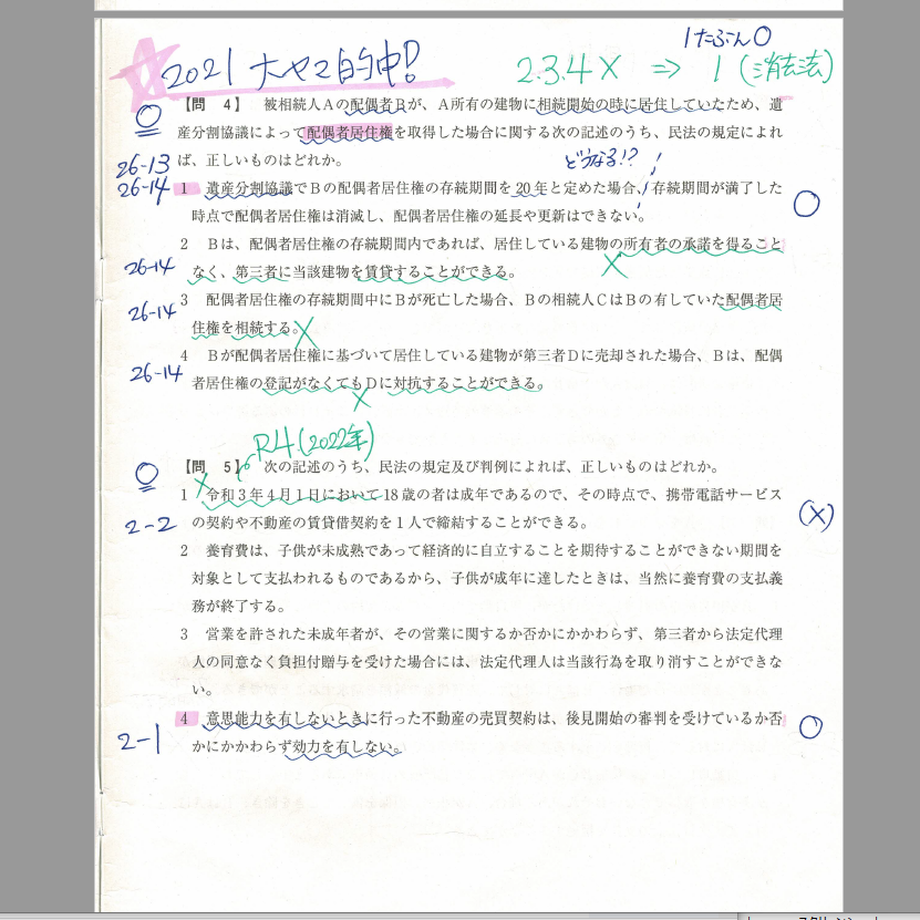 1たぶん○
2021 大ヤマ的中!
2.3.4× ⇒ 1(消去法)
【問 4】 被相続人Aの配偶者Bが、A所有の建物に相続開始の時に居住していたため、遺
産分割協議によって配偶者居住権を取得した場合に関する次の記述のうち、民法の規定によれ
ば、正しいものはどれか。
26-13
どうなる!?
26-14
1 遺産分割協議でBの配偶者居住権の存続期間を20年と定めた場合、存続期間が満了した
時点で配偶者居住権は消滅し、配偶者居住権の延長や更新はできない。
2 Bは、配偶者居住権の存続期間内であれば、居住している建物の所有者の承諾を得ること
26-14
なく、第三者に当該建物を賃貸することができる。
3 配偶者居住権の存続期間中にBが死亡した場合、Bの相続人CはBの有していた配偶者居
26-14
住権を相続する。
4 Bが配偶者居住権に基づいて居住している建物が第三者Dに売却された場合、Bは、配偶
26-14
者居住権の登記がなくてもDに対抗することができる。
R4(2022年)
【問 5】 次の記述のうち、民法の規定及び判例によれば、正しいものはどれか。
1 令和3年4月1日において18歳の者は成年であるので、その時点で、携帯電話サービス
2-2
の契約や不動産の賃貸借契約を1人で締結することができる。
(×)
2 養育費は、子供が未成熟であって経済的に自立することを期待することができない期間を
対象として支払われるものであるから、子供が成年に達したときは、当然に養育費の支払義
務が終了する。
3 営業を許された未成年者が、その営業に関するか否かにかかわらず、第三者から法定代理
人の同意なく負担付贈与を受けた場合には、法定代理人は当該行為を取り消すことができな
い。
4 意思能力を有しないときに行った不動産の売買契約は、後見開始の審判を受けているか否
2-1
かにかかわらず効力を有しない。